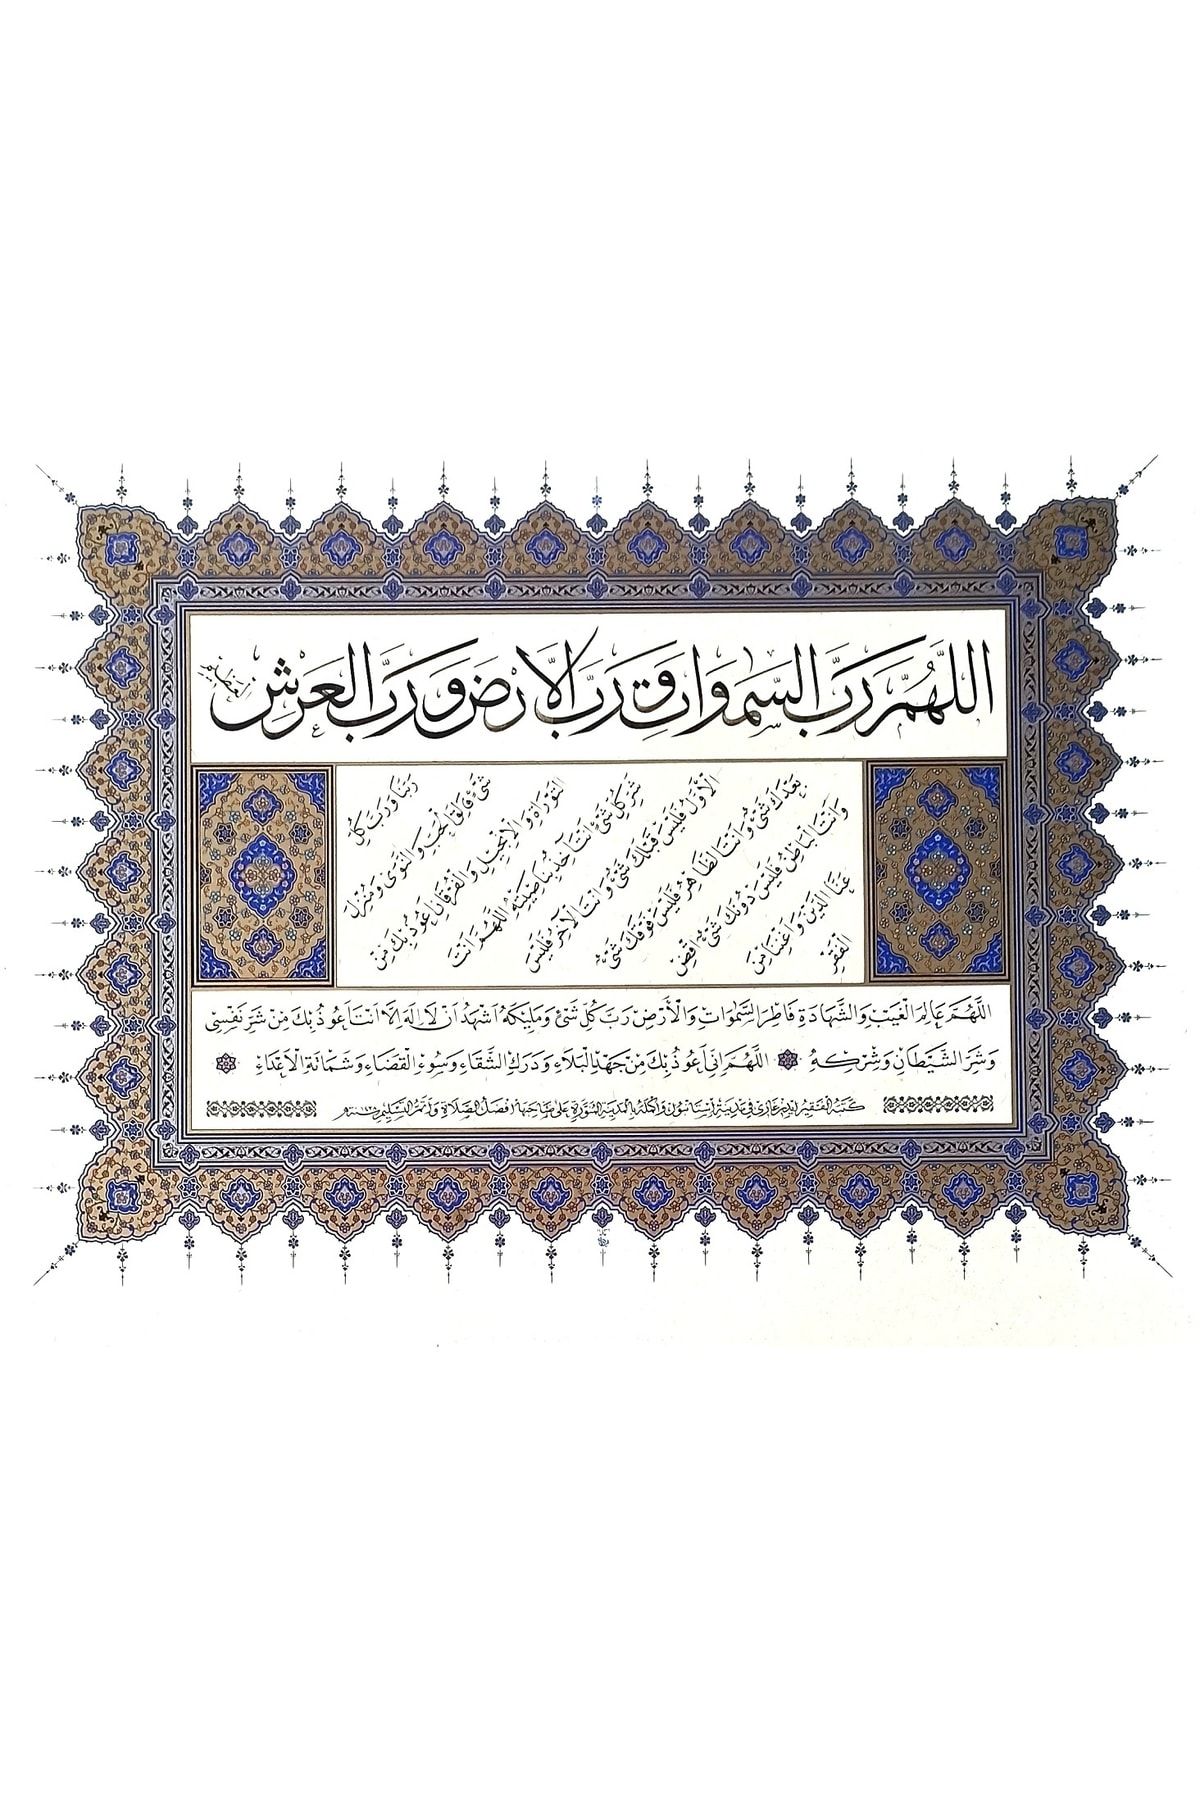 اللّٰهُمَّ رَبَّ السَّمٰوَاتِ وَرَبَّ الْاَرْضِ وَرَبَّ الْعَرْشِ الْعَظِيمِ
رَبَّنَا وَرَبَّ كُلِّ
شَيْءٍ فَالِقَ الْحَبِّ وَالنَّوَى وَمُنْزِلَ
التَّوْرَاةِ وَالْاِنْجِيلِ وَالْفُرْقَانِ اَعُوذُ بِكَ مِنْ
شَرِّ كُلِّ شَيْءٍ اَنْتَ آخِذٌ بِنَاصِيَتِهِ اللّٰهُمَّ اَنْتَ
الْاَوَّلُ فَلَيْسَ قَبْلَكَ شَيْءٌ وَاَنْتَ الْآخِرُ فَلَيْسَ
بَعْدَكَ شَيْءٌ وَاَنْتَ الظَّاهِرُ فَلَيْسَ فَوْقَكَ شَيْءٌ
وَاَنْتَ الْبَاطِنُ فَلَيْسَ دُونَكَ شَيْءٌ اِقْضِ
عَنَّا الدَّيْنَ وَاَغْنِنَا مِنَ
الْفَقْرِ
اللّٰهُمَّ عَالِمَ الْغَيْبِ وَالشَّهَادَةِ فَاطِرَ السَّمٰوَاتِ وَالْاَرْضِ رَبَّ كُلِّ شَيْءٍ وَمَلِيكَهُ اَشْهَدُ اَنْ لَا اِلٰهَ اِلَّا اَنْتَ اَعُوذُ بِكَ مِنْ شَرِّ نَفْسِي
وَشَرِّ الشَّيْطَانِ وَشِرْكِهِ اللّٰهُمَّ اِنِّي اَعُوذُ بِكَ مِنْ جَهْدِ الْبَلَاءِ وَدَرَكِ الشَّقَاءِ وَسُوءِ الْقَضَاءِ وَشَمَاتَةِ الْاَعْدَاءِ
كَتَبَهُ الْفَقِيرُ غازي فِي مَدِينَةِ اِسْتَانْبُولَ وَاَكْمَلَهُ الْمَدِينَةِ الْمُنَوَّرَةِ عَلَى صَاحِبِهَا اَفْضَلُ الصَّلَاةِ وَاَتَمُّ التَّسْلِيمِ